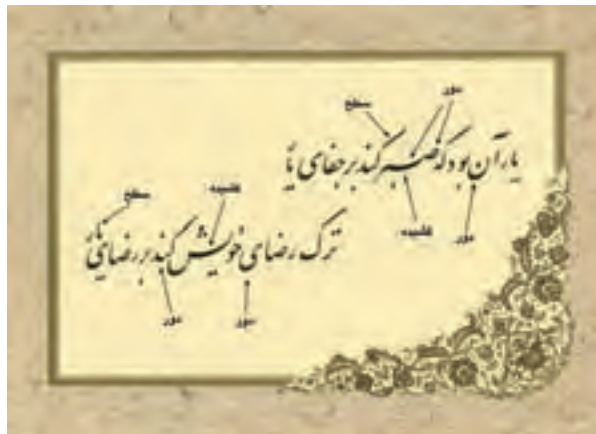 دور
سطح
یار آن بود که صبر کند بر جفای یار
دور
سطح
ترک رضای خویش کند بر رضای یار
دور
دور